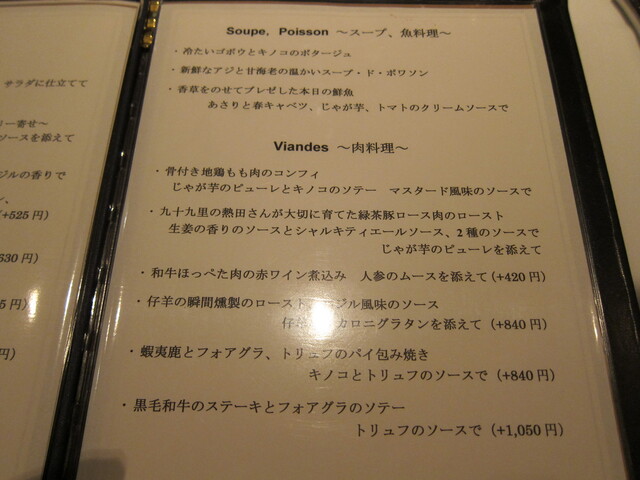 サラダに仕立てて
ー寄せ～
ソースを添えて
ジルの香りで
+525円)
630円)
5円)
円)
Soupe, Poisson ～スープ、魚料理～
・冷たいゴボウとキノコのポタージュ
・新鮮なアジと甘海老の温かいスープ・ド・ポワソン
・香草をのせてブレゼした本日の鮮魚
あさりと春キャベツ、じゃが芋、トマトのクリームソースで
Viandes ～肉料理～
・骨付き地鶏もも肉のコンフィ
じゃが芋のピューレとキノコのソテー マスタード風味のソースで
・九十九里の熱田さんが大切に育てた緑茶豚ロース肉のロースト
生姜の香りのソースとシャルキティエールソース、2種のソースで
じゃが芋のピューレを添えて
・和牛ほっぺた肉の赤ワイン煮込み 人参のムースを添えて (+420円)
・仔羊の瞬間燻製のロースト ジル風味のソース
仔羊 カロニグラタンを添えて (+840円)
・蝦夷鹿とフォアグラ、トリュフのパイ包み焼き
キノコとトリュフのソースで (+840円)
・黒毛和牛のステーキとフォアグラのソテー
トリュフのソースで (+1,050円)